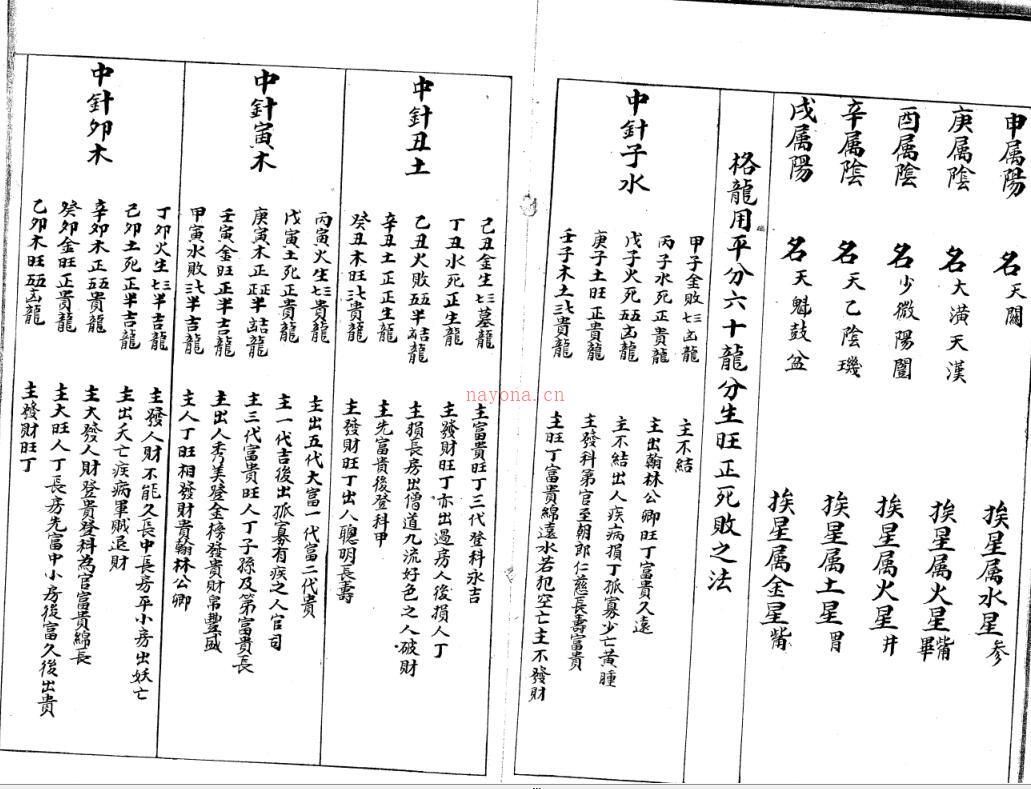 申属陽 名天關 挨星属水星参
庚属陰 名大潢天漢 挨星属火星觜畢
酉属陰 名少微陽闔 挨星属火星井
辛属陰 名天乙陰璣 挨星属土星胃
戌属陽 名天魁鼓盆 挨星属金星觜
格龍用平分六十龍分生旺正死敗之法
中針子水
甲子金敗七三凶龍 主不結
丙子水死正貴龍 主出翰林公卿旺丁富貴久遠
戊子火死五五凶龍 主不結出人疾病損丁孤寡少亡黃腫
庚子土旺正貴龍 主發科第官至朝郎仁慈長壽富貴
壬子木土三七貴龍 主旺丁富貴綿遠水若犯空亡主不發財
中針丑土
己丑金生七三墓龍 主富貴旺丁三代登科永吉
丁丑水死正生龍 主發財旺丁亦出過房人後損人丁
乙丑火敗五五半吉龍 主損長房出僧道九流好色之人破財
辛丑土正正生龍 主先富貴後登科甲
癸丑木旺三七貴龍 主發財旺丁出人聰明長壽
中針寅木
丙寅火生七三貴龍 主出五代大富一代富二代貴
戊寅土死正貴龍 主一代吉後出孤寡有疾之人官司
庚寅木正正半吉龍 主三代富貴旺人丁子孫及第富貴長
壬寅金旺正半吉龍 主出人秀美登金榜發貴財帛豐盛
甲寅水敗三七半吉龍 主人丁旺相發財貴翰林公卿
中針卯木
丁卯火生七三半吉龍 主發人財不能久長中長房平小房出妖亡
己卯土死正半吉龍 主出夭亡疾病軍賊退財
辛卯木正五五貴龍 主大發人財登貴登科為官富貴綿長
癸卯金旺正貴龍 主大旺人丁長房先富中小房後富久後出貴
乙卯木旺五五凶龍 主發財旺丁
nayona.cn